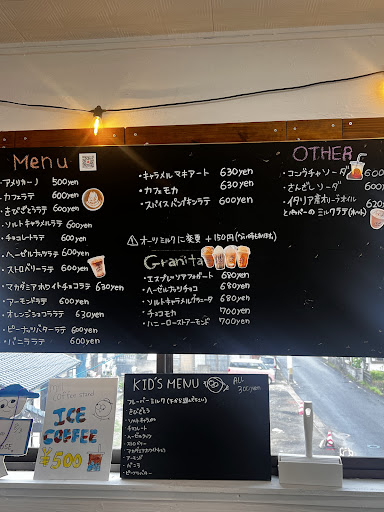 Menu
・アメリカーノ 500yen
・カフェラテ 600yen
・きびざとうラテ 600yen
・ソルトキャラメルラテ 600yen
・チョコレートラテ 600yen
・ヘーゼルナッツラテ 600yen
・ストロベリーラテ 600yen
・マカダミアホワイトチョコラテ 630yen
・アーモンドラテ 600yen
・オレンジショコララテ 630yen
・ピーナッツバターラテ 600yen
・バニララテ 600yen
・キャラメルマキアート 630yen
・カフェモカ 630yen
・スパイスパンプキンラテ 650yen
⚠オーツミルクに変更 +150円
Granita
・エスプレッソアフォガート 680yen
・ヘーゼルナッツチョコ 680yen
・ソルトキャラメルグラニータ 680yen
・チョコモカ 700yen
・ハニーローストアーモンド 700yen
OTHER
・コンブチャソーダ 600
・さんざしソーダ
・イタリア産オリーブオイル
ICE
COFFEE
¥500
KID'S MENU ALL 300yen
フレーバーミルク
・きびざとう
・ソルトキャラメル
・チョコレート
・ヘーゼルナッツ
・ストロベリー
・マカダミアホワイトチョコ
・アーモンド
・バニラ
・ピーナッツバター